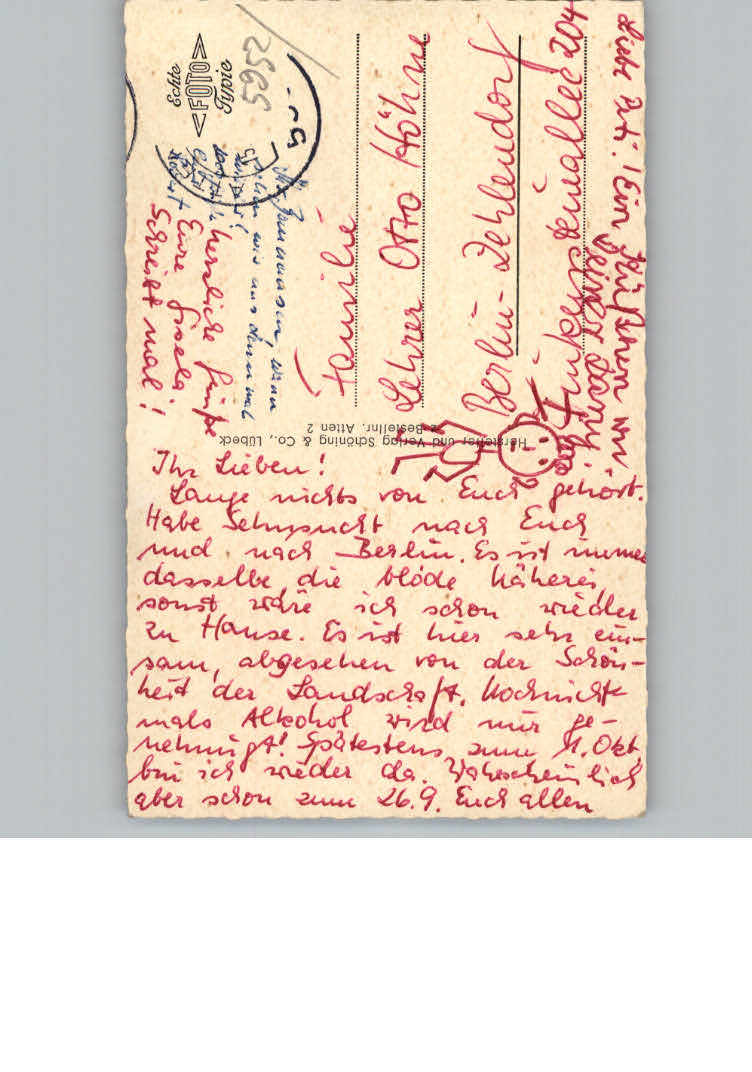 Ihr Lieben!
Lange nichts von Euch gehört.
Habe Sehnsucht nach Euch
und nach Berlin. Es ist immer
dasselbe, die blöde Näherei,
sonst wäre ich schon wieder
zu Hause. Es ist hier sehr ein-
sam, abgesehen von der Schön-
heit der Landschaft. Nochnicht
mals Alkohol wird mir ge-
nehmigt! Spätestens zum 1. Okt.
bin ich wieder da. Wahrscheinlich
aber schon zum 26.9. Euch allen
herzliche Grüße
Eure Gisela
Schreibt mal!
wann
wir uns denn mal
Familie
Lehrer Otto Höhne
Berlin-Zehlendorf
Finkensteinallee 204
Liebe Ute! Ein Küßchen von
Deiner
Echte
<FOTO>
Typie
5952
Hersteller und Verlag Schöning & Co., Lübeck
Bestellnr. Atten 2